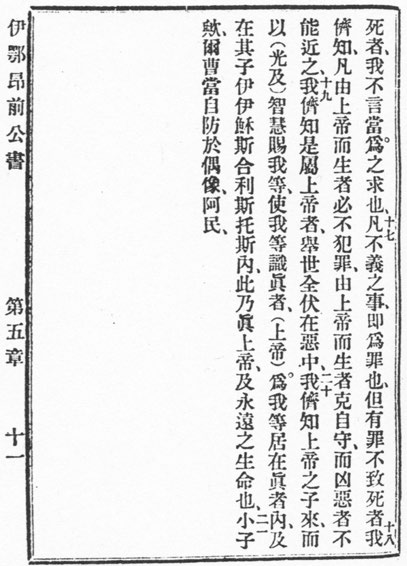 死者、我不言當爲之求也、十七凡不義之事、卽爲罪也、但有罪不致死者、十八我
儕知、凡由上帝而生者必不犯罪、由上帝而生者克自守、而凶惡者不
能近之、十九我儕知是屬上帝者、舉世全伏在惡中、二十我儕知上帝之子來、而
以（光及）智慧賜我等、使我等識眞者（上帝）。爲我等居在眞者內、及
在其子伊伊穌斯合利斯托斯內、此乃眞上帝、及永遠之生命也、二一小子
歟、爾曹當自防於偶像、阿民、
伊鄂昂前公書　第五章　十一